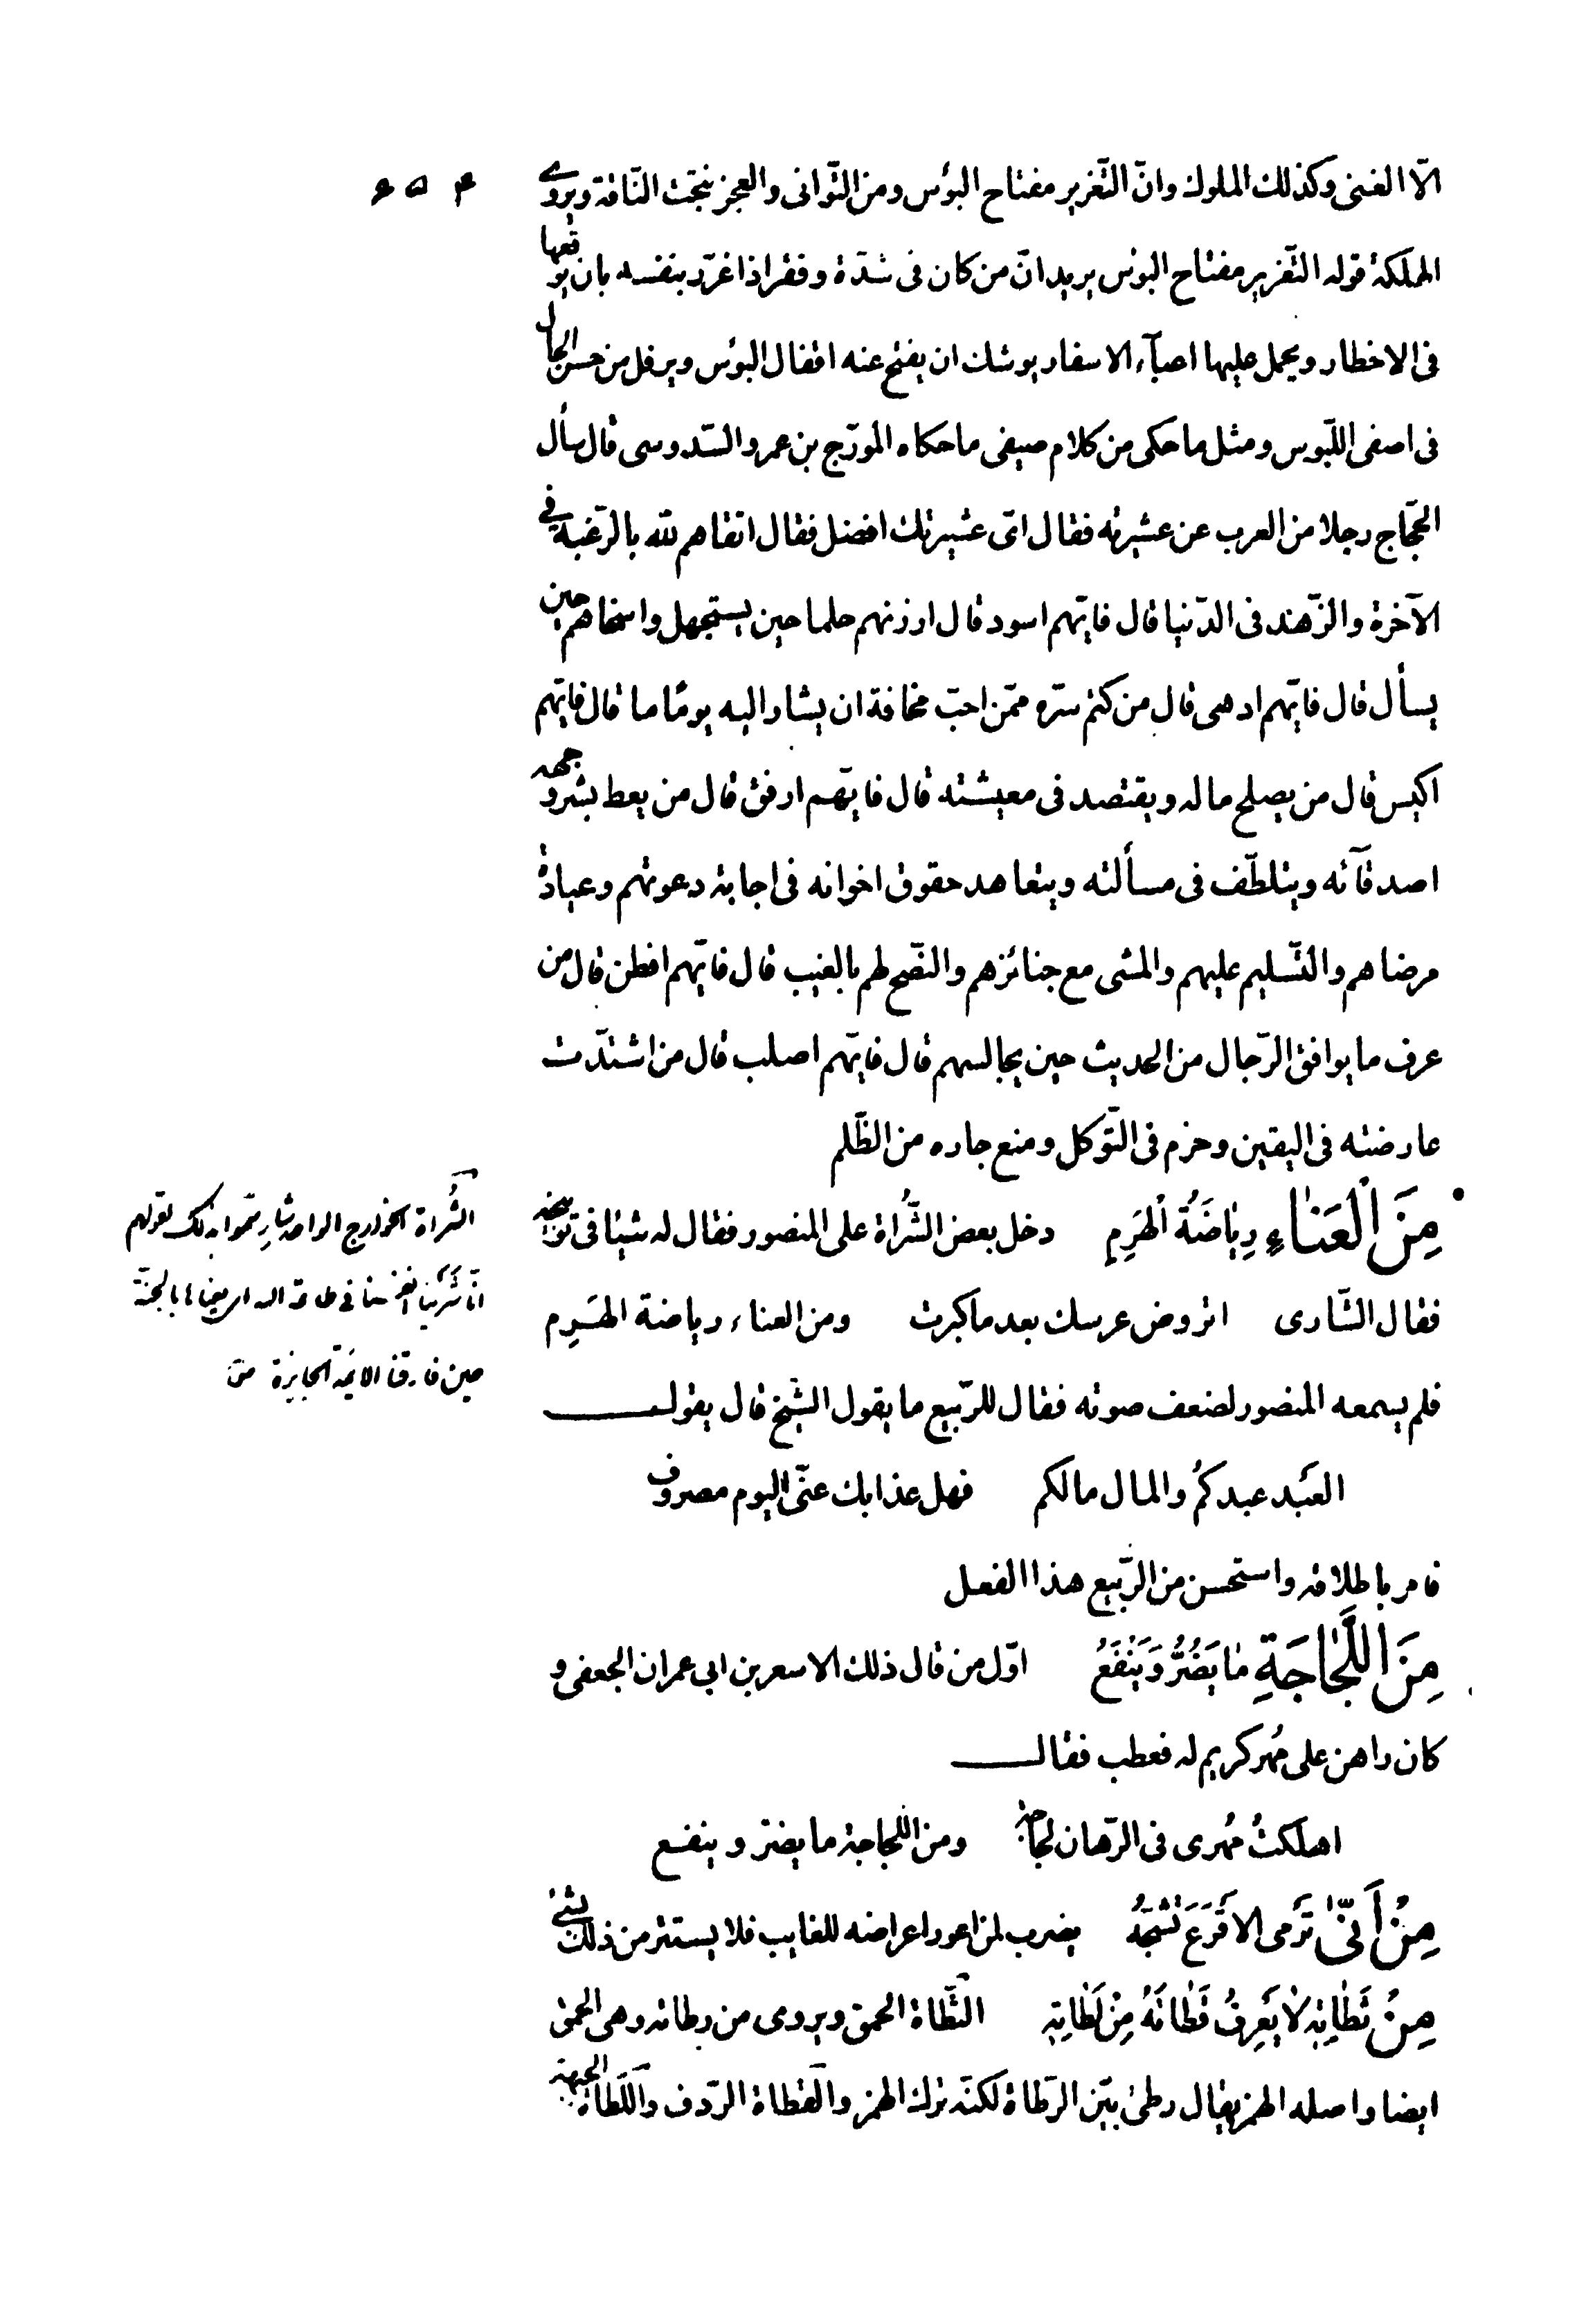 ۴۵۶
الّا الغنى وكذلك الملوك وانّ التّغرير مفتاح البؤس ومن التّوانى والعجز نتجت النّاقة ويروى
الهلكة قوله التّغرير مفتاح البؤس يريد انّ من كان فى شدّة وفقر اذا غرّر بنفسه بان يوقعها
فى الاخطار ويحمل عليها اعبآء الاسفار يوشك ان يفتح عنه اقفال البؤس ويرفل من حسن الحال
فى اصفى اللّبوس ومثل ما حكى من كلام صيفى ما حكاه المورّج بن عمرو السّدوسى قال سأل
الحجّاج رجلا من العرب عن عشيرته فقال اىّ عشيرتك افضل فقال اتقاهم للّه بالرّغبة فى
الآخرة والزّهد فى الدّنيا قال فايّهم اسود قال ارزنهم حلما حين يستجهل واسخاهم حين
يسأل قال فايّهم ادهى قال من كتم سرّه ممّن احبّ مخافة ان يشار اليه يومًا ما قال فايّهم
اكيس قال من يصلح ماله ويقتصد فى معيشته قال فايّهم ارفق قال من يعط بشر وجهه
اصدقآئه ويتلطّف فى مسألته ويتعاهد حقوق اخوانه فى اجابة دعوتهم وعيادة
مرضاهم والتّسليم عليهم والمشى مع جنائزهم والنّصح لهم بالغيب قال فايّهم افطن قال من
عرف ما يوافق الرّجال من الحديث حين يجالسهم قال فايّهم اصلب قال من اشتدّت
عارضته فى اليقين وحزم فى التّوكل ومنع جاره من الظّلم
مِنَ الْعَنٰاءِ رِيٰاضَةُ الْهَرِمِ دخل بعض الشُّراة على المنصور فقال له شيئا فى توبيخه
فقال الشّارى اتروض عرسك بعد ما كبرت ومن العناء رياضة الهَرِم
فلم يسمعه المنصور لضعف صوته فقال للرّبيع ما يقول الشّيخ قال يقول
العَبد عبدكمُ والمال مالكم فهل عذابك عنّى اليوم مصروف
فامر باطلاقه واستحسن من الرّبيع هذا الفعل
مِنَ اللَّجٰاجَةِ مٰا يَضُرُّ وَيَنْفَعُ اوّل من قال ذلك الاسعر بن ابى عمران الجعفى و
كان راهن على مُهر كريم له فعطب فقال
اهلكتُ مُهرى فى الرّهان لجاجة ومن اللّجاجة ما يضرّ وينفع
مِنْ أَنّىٰ تَرْمى الاَقْرَعَ تَشُجَّهُ يضرب لمن اعور اعراضه للعايب فلا يستتر من ذلك بشئ
مِنْ ثَطٰاتِهِ لاٰ يَعْرِفُ قَطٰاتَهُ مِنْ لَطٰاتِهِ الثّطاة الحمق ويروى من رطاته وهى الحمق
ايضا واصله الهمز يقال رطئ بيّن الرّطاة لكنّه ترك الهمز والقطاة الرّدف واللّطاة الجبهة
الشُراة الخوارج الواحد شارٍ سمّوا بذلك لقولهم
انّا شَرَينا انفسنا فى طاعة اللّه اى بعناها بالجنّة
حين فارقنا الائمّة الجايرة ص